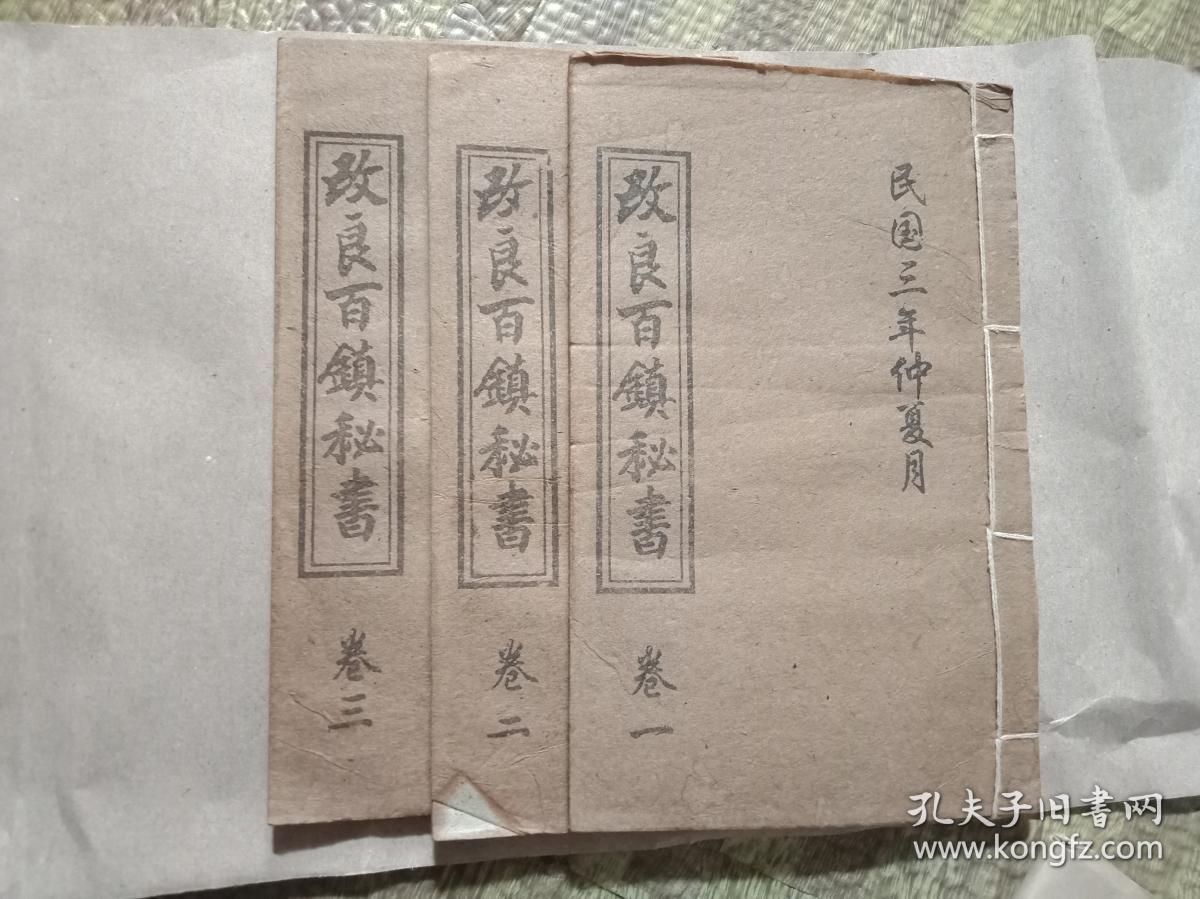 民国三年仲夏月
改良百鎮秘書
卷一
改良百鎮秘書
卷二
改良百鎮秘書
卷三
孔夫子旧書网
www.kongfz.com